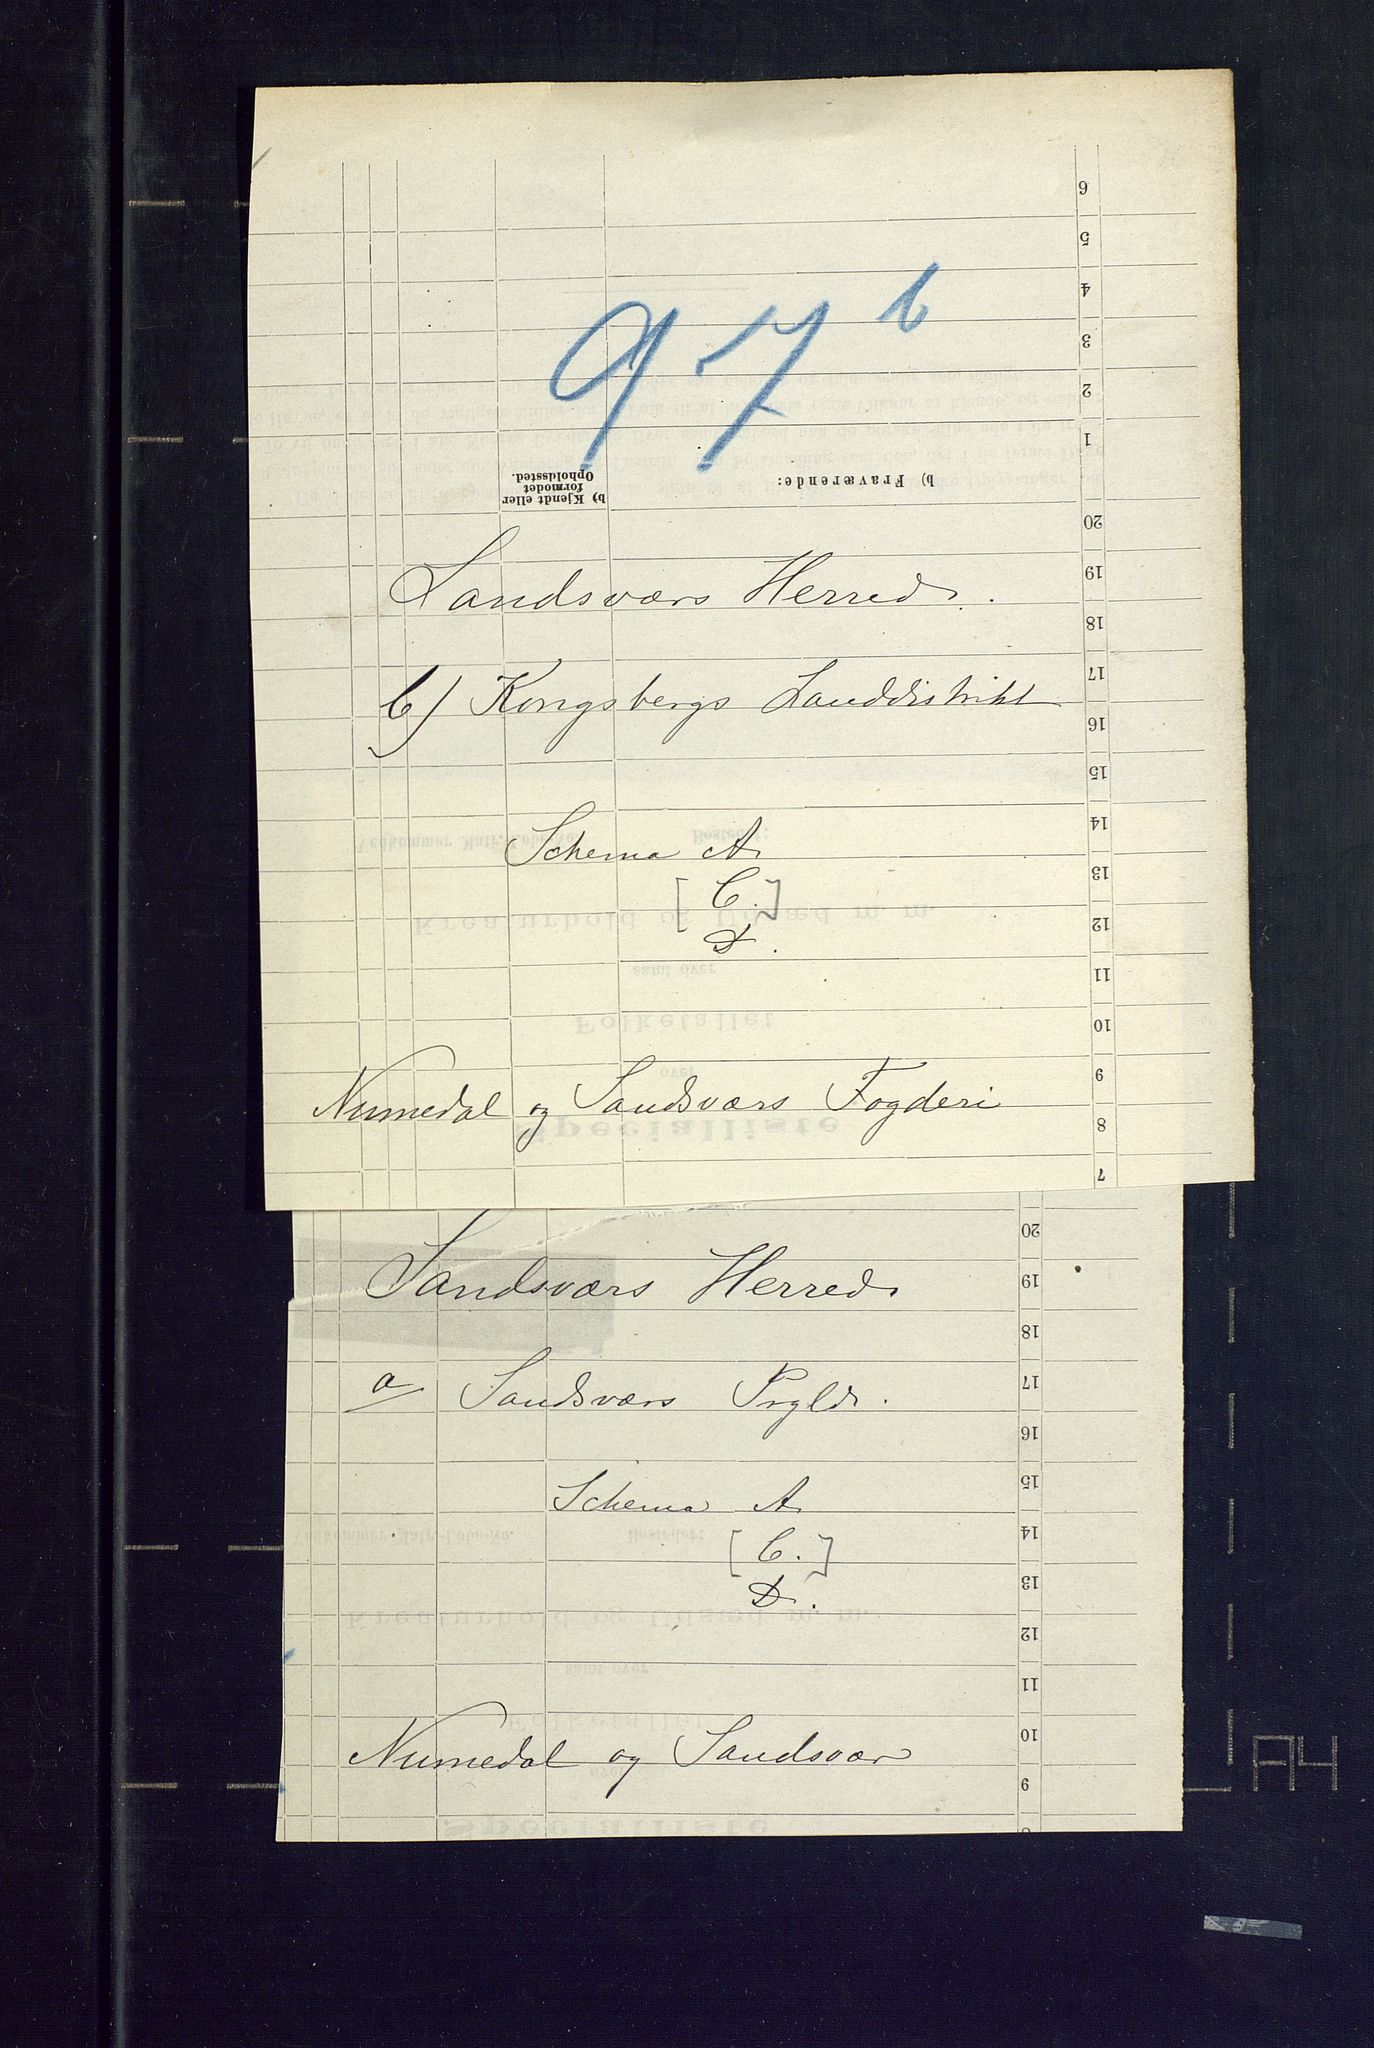 97 b
b) Fraværende:
b) Kjendt eller
formodet
Opholdssted.
Sandsværs Herred.
b) Kongsbergs Landdistrikt
Schema A.
[C.]
D.
Numedal og Sandsværs Fogderi
6
5
4
3
2
1
20
19
18
17
16
15
14
13
12
11
10
9
8
7
Sandsværs Herred.
a Sandsværs Prgld.
Schema A.
[C.]
D.
Numedal og Sandsvær
20
19
18
17
16
15
14
13
12
11
10
9
A4